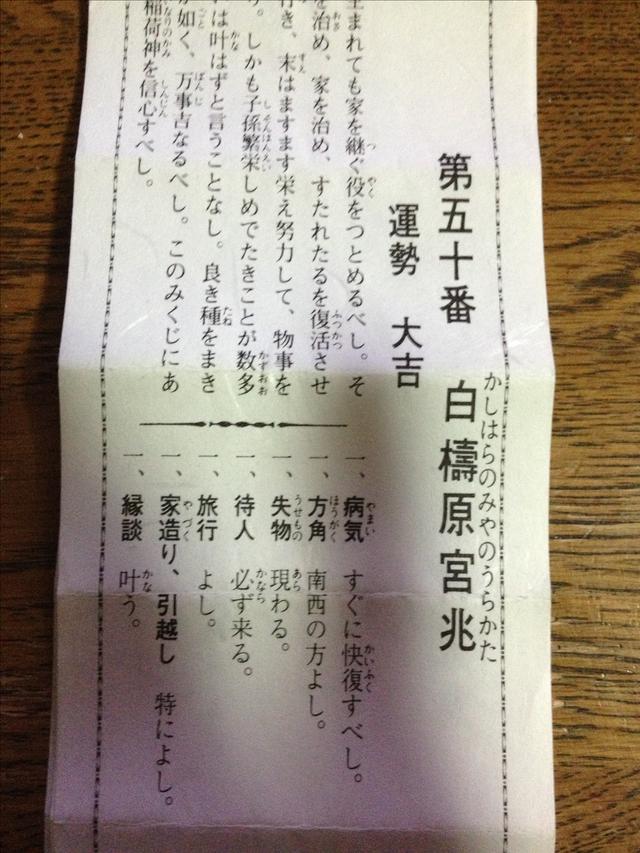 第五十番 白檮原宮兆
かしはらのみやのうらかた
運勢 大吉
まれても家を継ぐ役をつとめるべし。そ
を治め、家を治め、すたれたるを復活させ
行き、末はますます栄え努力して、物事を
。しかも子孫繁栄しめでたきことが数多
は叶はずと言うことなし。良き種をまき
如く、万事吉なるべし。このみくじにあ
稲荷神を信心すべし。
一、病気 すぐに快復すべし。
一、方角 南西の方よし。
一、失物 現わる。
一、待人 必ず来る。
一、旅行 よし。
一、家造り、引越し 特によし。
一、縁談 叶う。